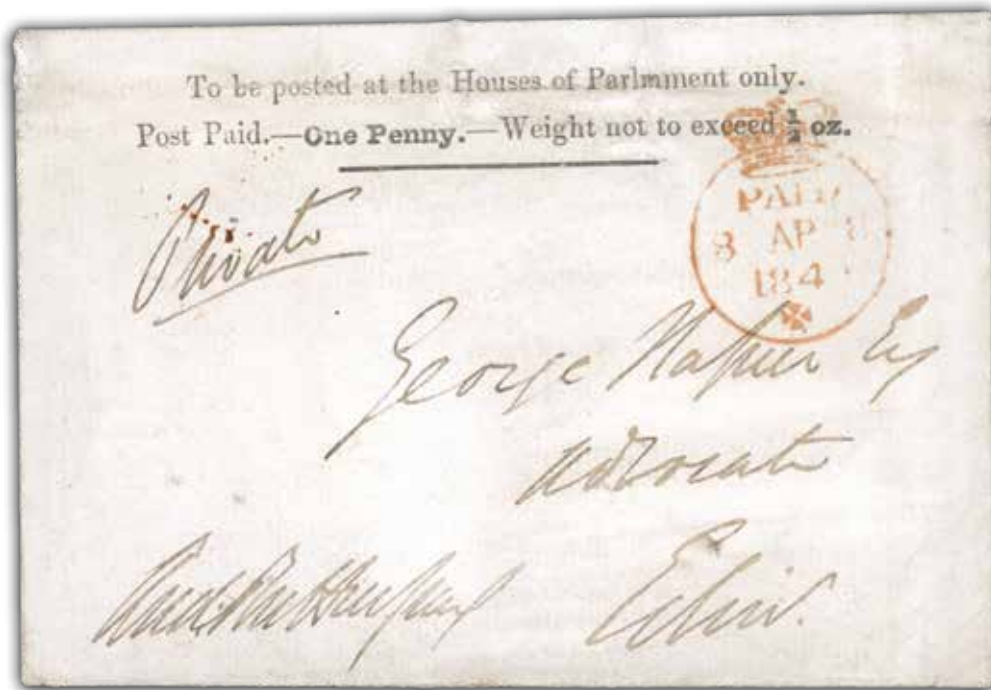 To be posted at the Houses of Parlmment only.
Post Paid.—One Penny.—Weight not to exceed ½ oz.
PAID
8 AP 8
184
Private
George Napier Esq
Advocate
Edinr.